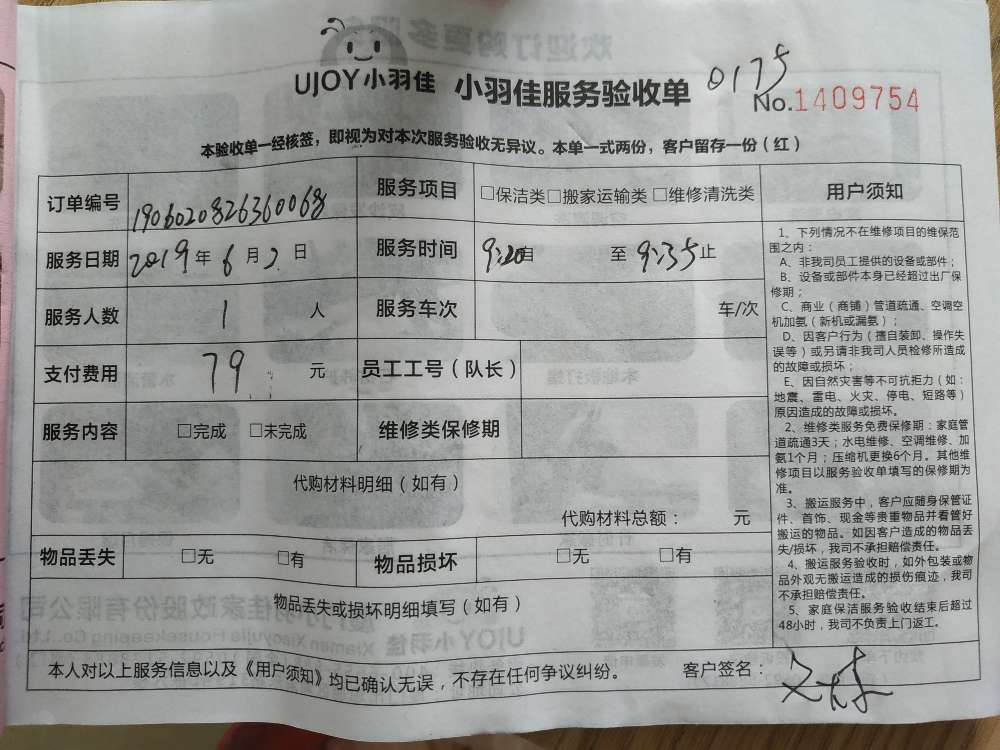 UJOY小羽佳 小羽佳服务验收单 0175
No.1409754
本验收单一经核签，即视为对本次服务验收无异议。本单一式两份，客户留存一份（红）
订单编号 1906020826360068 服务项目 □保洁类□搬家运输类 □维修清洗类
服务日期 2019 年 6 月 2 日 服务时间 9:20自 至 9:35止
服务人数 1 人 服务车次 车/次
支付费用 79 元 员工工号（队长）
服务内容 □完成 □未完成 维修类保修期
代购材料明细（如有）
代购材料总额： 元
物品丢失 □无 □有 物品损坏 □无 □有
物品丢失或损坏明细填写（如有）
本人对以上服务信息以及《用户须知》均已确认无误，不存在任何争议纠纷。 客户签名：
用户须知
1、下列情况不在维修项目的维保范
围之内：
A、非我司员工提供的设备或部件；
B、设备或部件本身已经超过出厂保
修期；
C、商业（商铺）管道疏通、空调空
机加氨（新机或漏氨）；
D、因客户行为（擅自装卸、操作失
误等）或另请非我司人员检修所造成
的故障或损坏；
E、因自然灾害等不可抗拒力（如：
地震、雷电、火灾、停电、短路等）
原因造成的故障或损坏。
2、维修类服务免费保修期：家庭管
道疏通3天；水电维修、空调维修、加
氨1个月；压缩机更换6个月。其他维
修项目以服务验收单填写的保修期为
准。
3、搬运服务中，客户应随身保管证
件、首饰、现金等贵重物品并看管好
搬运的物品。如因客户造成的物品丢
失/损坏，我司不承担赔偿责任。
4、搬运服务验收时，如外包装或物
品外观无搬运造成的损伤痕迹，我司
不承担赔偿责任。
5、家庭保洁服务验收结束后超过
48小时，我司不负责上门返工。